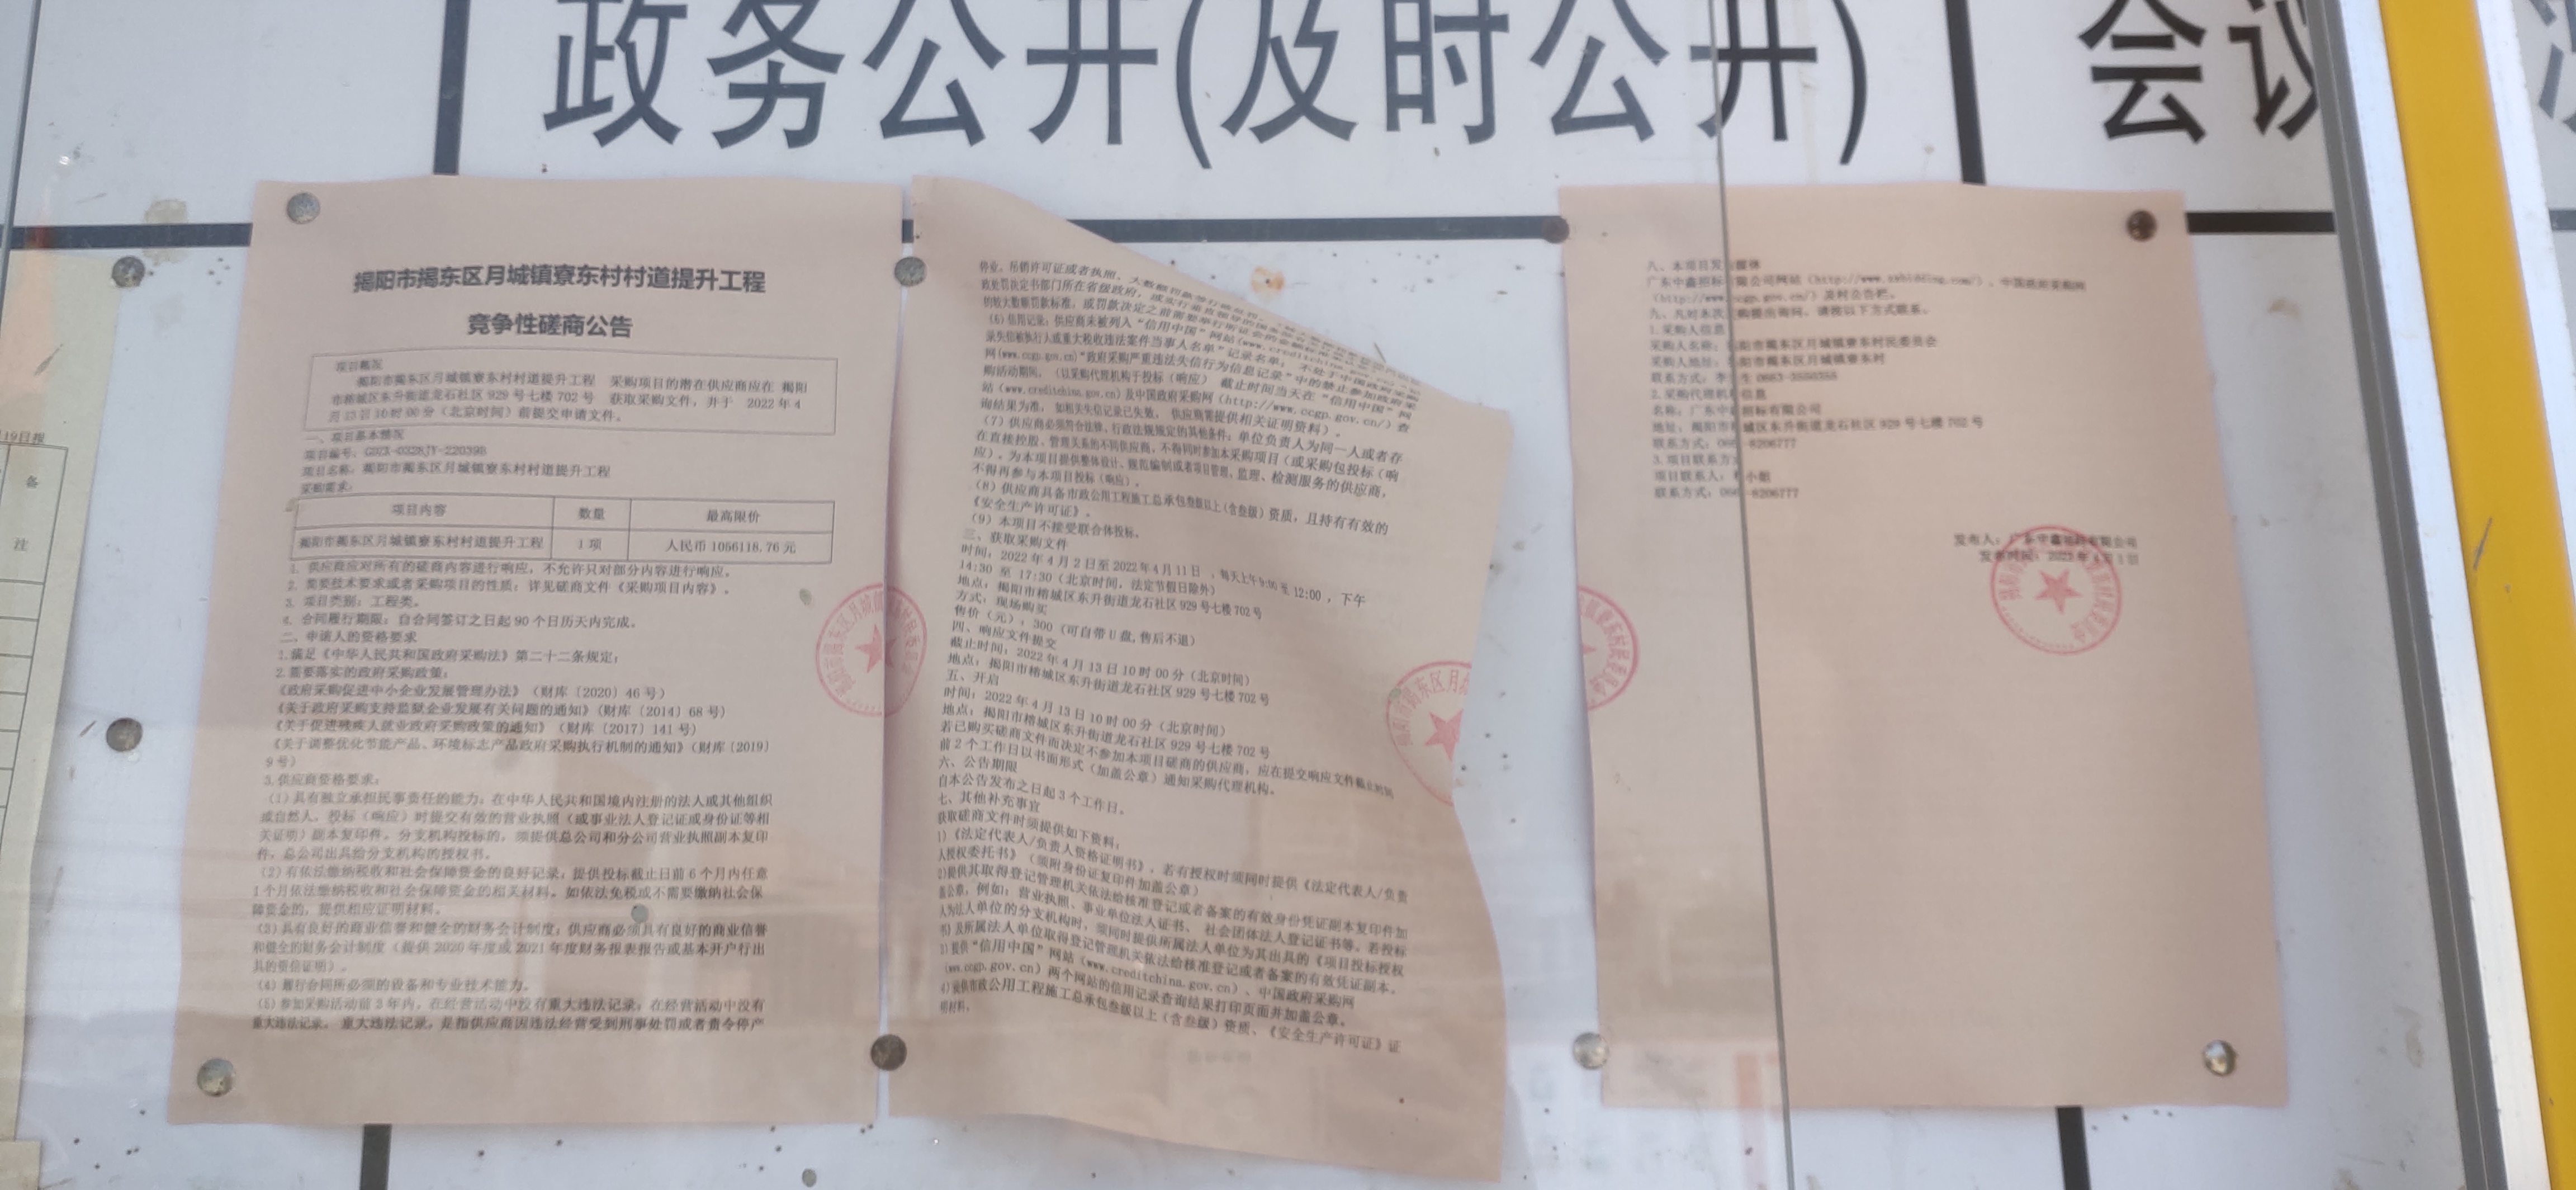 政务公开(及时公开)
会议
揭阳市揭东区月城镇寮东村村道提升工程
竞争性磋商公告
项目概况
揭阳市揭东区月城镇寮东村村道提升工程 采购项目的潜在供应商应在 揭阳
市榕城区东升街道龙石社区 929 号七楼 702 号 获取采购文件，并于 2022 年 4
月 13 日 10 时 00 分（北京时间）前提交申请文件。
一、项目基本情况
项目编号：GDZX-0328JY-22039B
项目名称：揭阳市揭东区月城镇寮东村村道提升工程
采购需求：
项目内容 数量 最高限价
揭阳市揭东区月城镇寮东村村道提升工程 1 项 人民币 1056118.76 元
1. 供应商应对所有的磋商内容进行响应，不允许只对部分内容进行响应。
2. 需要技术要求或者采购项目的性质：详见磋商文件《采购项目内容》。
3. 项目类别：工程类。
4. 合同履行期限：自合同签订之日起 90 个日历天内完成。
二、申请人的资格要求
1.满足《中华人民共和国政府采购法》第二十二条规定；
2.需要落实的政府采购政策：
《政府采购促进中小企业发展管理办法》（财库〔2020〕46 号）
《关于政府采购支持监狱企业发展有关问题的通知》（财库〔2014〕68 号）
《关于促进残疾人就业政府采购政策的通知》（财库〔2017〕141 号）
《关于调整优化节能产品、环境标志产品政府采购执行机制的通知》（财库〔2019〕
9 号）
3.供应商资格要求：
（1）具有独立承担民事责任的能力：在中华人民共和国境内注册的法人或其他组织
或自然人，投标（响应）时提交有效的营业执照（或事业法人登记证或身份证等相
关证明）副本复印件。分支机构投标的，须提供总公司和分公司营业执照副本复印
件，总公司出具给分支机构的授权书。
（2）有依法缴纳税收和社会保障资金的良好记录：提供投标截止日前 6 个月内任意
1 个月依法缴纳税收和社会保障资金的相关材料。如依法免税或不需要缴纳社会保
障资金的，提供相应证明材料。
（3）具有良好的商业信誉和健全的财务会计制度：供应商必须具有良好的商业信誉
和健全的财务会计制度（提供 2020 年度或 2021 年度财务报表报告或基本开户行出
具的资信证明）。
（4）履行合同所必须的设备和专业技术能力。
（5）参加采购活动前 3 年内，在经营活动中没有重大违法记录：在经营活动中没有
重大违法记录。重大违法记录，是指供应商因违法经营受到刑事处罚或者责令停产
停业、吊销许可证或者执照、
政处罚决定书部门所在省级政府，
的较大数额罚款标准，或罚款决定之前需要举行听证会的
（6）信用记录：供应商未被列入“信用中国”网站(www.creditchina.gov.cn)
录失信被执行人或重大税收违法案件当事人名单”记录名单；不处于中国政府采购
网(www.ccgp.gov.cn)“政府采购严重违法失信行为信息记录”中的禁止参加政府采
购活动期间。（以采购代理机构于投标（响应） 截止时间当天在“信用中国”网
站（www.creditchina.gov.cn）及中国政府采购网（http://www.ccgp.gov.cn/）查
询结果为准，如相关失信记录已失效，供应商需提供相关证明资料）。
（7）供应商必须符合法律、行政法规规定的其他条件：单位负责人为同一人或者存
在直接控股、管理关系的不同供应商，不得同时参加本采购项目（或采购包投标（响
应）。为本项目提供整体设计、规范编制或者项目管理、监理、检测服务的供应商，
不得再参与本项目投标（响应）。
（8）供应商具备市政公用工程施工总承包叁级以上（含叁级）资质，且持有有效的
《安全生产许可证》。
（9）本项目不接受联合体投标。
三、获取采购文件
时间：2022 年 4 月 2 日至 2022 年 4 月 11 日 ，每天上午 9:00 至 12:00 ，下午
14:30 至 17:30（北京时间，法定节假日除外）
地点：揭阳市榕城区东升街道龙石社区 929 号七楼 702 号
方式：现场购买
售价（元）：300（可自带 U 盘,售后不退）
四、响应文件提交
截止时间：2022 年 4 月 13 日 10 时 00 分（北京时间）
地点：揭阳市榕城区东升街道龙石社区 929 号七楼 702 号
五、开启
时间：2022 年 4 月 13 日 10 时 00 分（北京时间）
地点：揭阳市榕城区东升街道龙石社区 929 号七楼 702 号
若已购买磋商文件而决定不参加本项目磋商的供应商，应在提交响应文件截止时间
前 2 个工作日以书面形式（加盖公章）通知采购代理机构。
六、公告期限
自本公告发布之日起 3 个工作日。
七、其他补充事宜
获取磋商文件时须提供如下资料：
1）《法定代表人/负责人资格证明书》，若有授权时须同时提供《法定代表人/负责
人授权委托书》（须附身份证复印件加盖公章）
2)提供其取得登记管理机关依法给核准登记或者备案的有效身份凭证副本复印件加
盖公章，例如：营业执照、事业单位法人证书、社会团体法人登记证书等。若投标
人为法人单位的分支机构时，须同时提供所属法人单位为其出具的《项目投标授权
书》及所属法人单位取得登记管理机关依法给核准登记或者备案的有效凭证副本。
3）提供“信用中国”网站（www.creditchina.gov.cn）、中国政府采购网
（www.ccgp.gov.cn）两个网站的信用记录查询结果打印页面并加盖公章。
4）提供市政公用工程施工总承包叁级以上（含叁级）资质、《安全生产许可证》证
明材料。
八、本项目发 媒体
广东中鑫招标有限公司网站（http://www.zxbidding.com/）、中国政府采购网
（http://www.ccgp.gov.cn/）及村公告栏。
九、凡对本次 购提出询问，请按以下方式联系。
1.采购人信息
采购人名称： 阳市揭东区月城镇寮东村民委员会
采购人地址： 阳市揭东区月城镇寮东村
联系方式：李 生 0663-3550355
2.采购代理机 信息
名称：广东中 招标有限公司
地址：揭阳市 城区东升街道龙石社区 929 号七楼 702 号
联系方式：066 -8206777
3.项目联系方
项目联系人： 小姐
联系方式：066 -8206777
发布人：广东中鑫招标有限公司
发布时间：2022 年 4 月 1 日
19日报
备
注